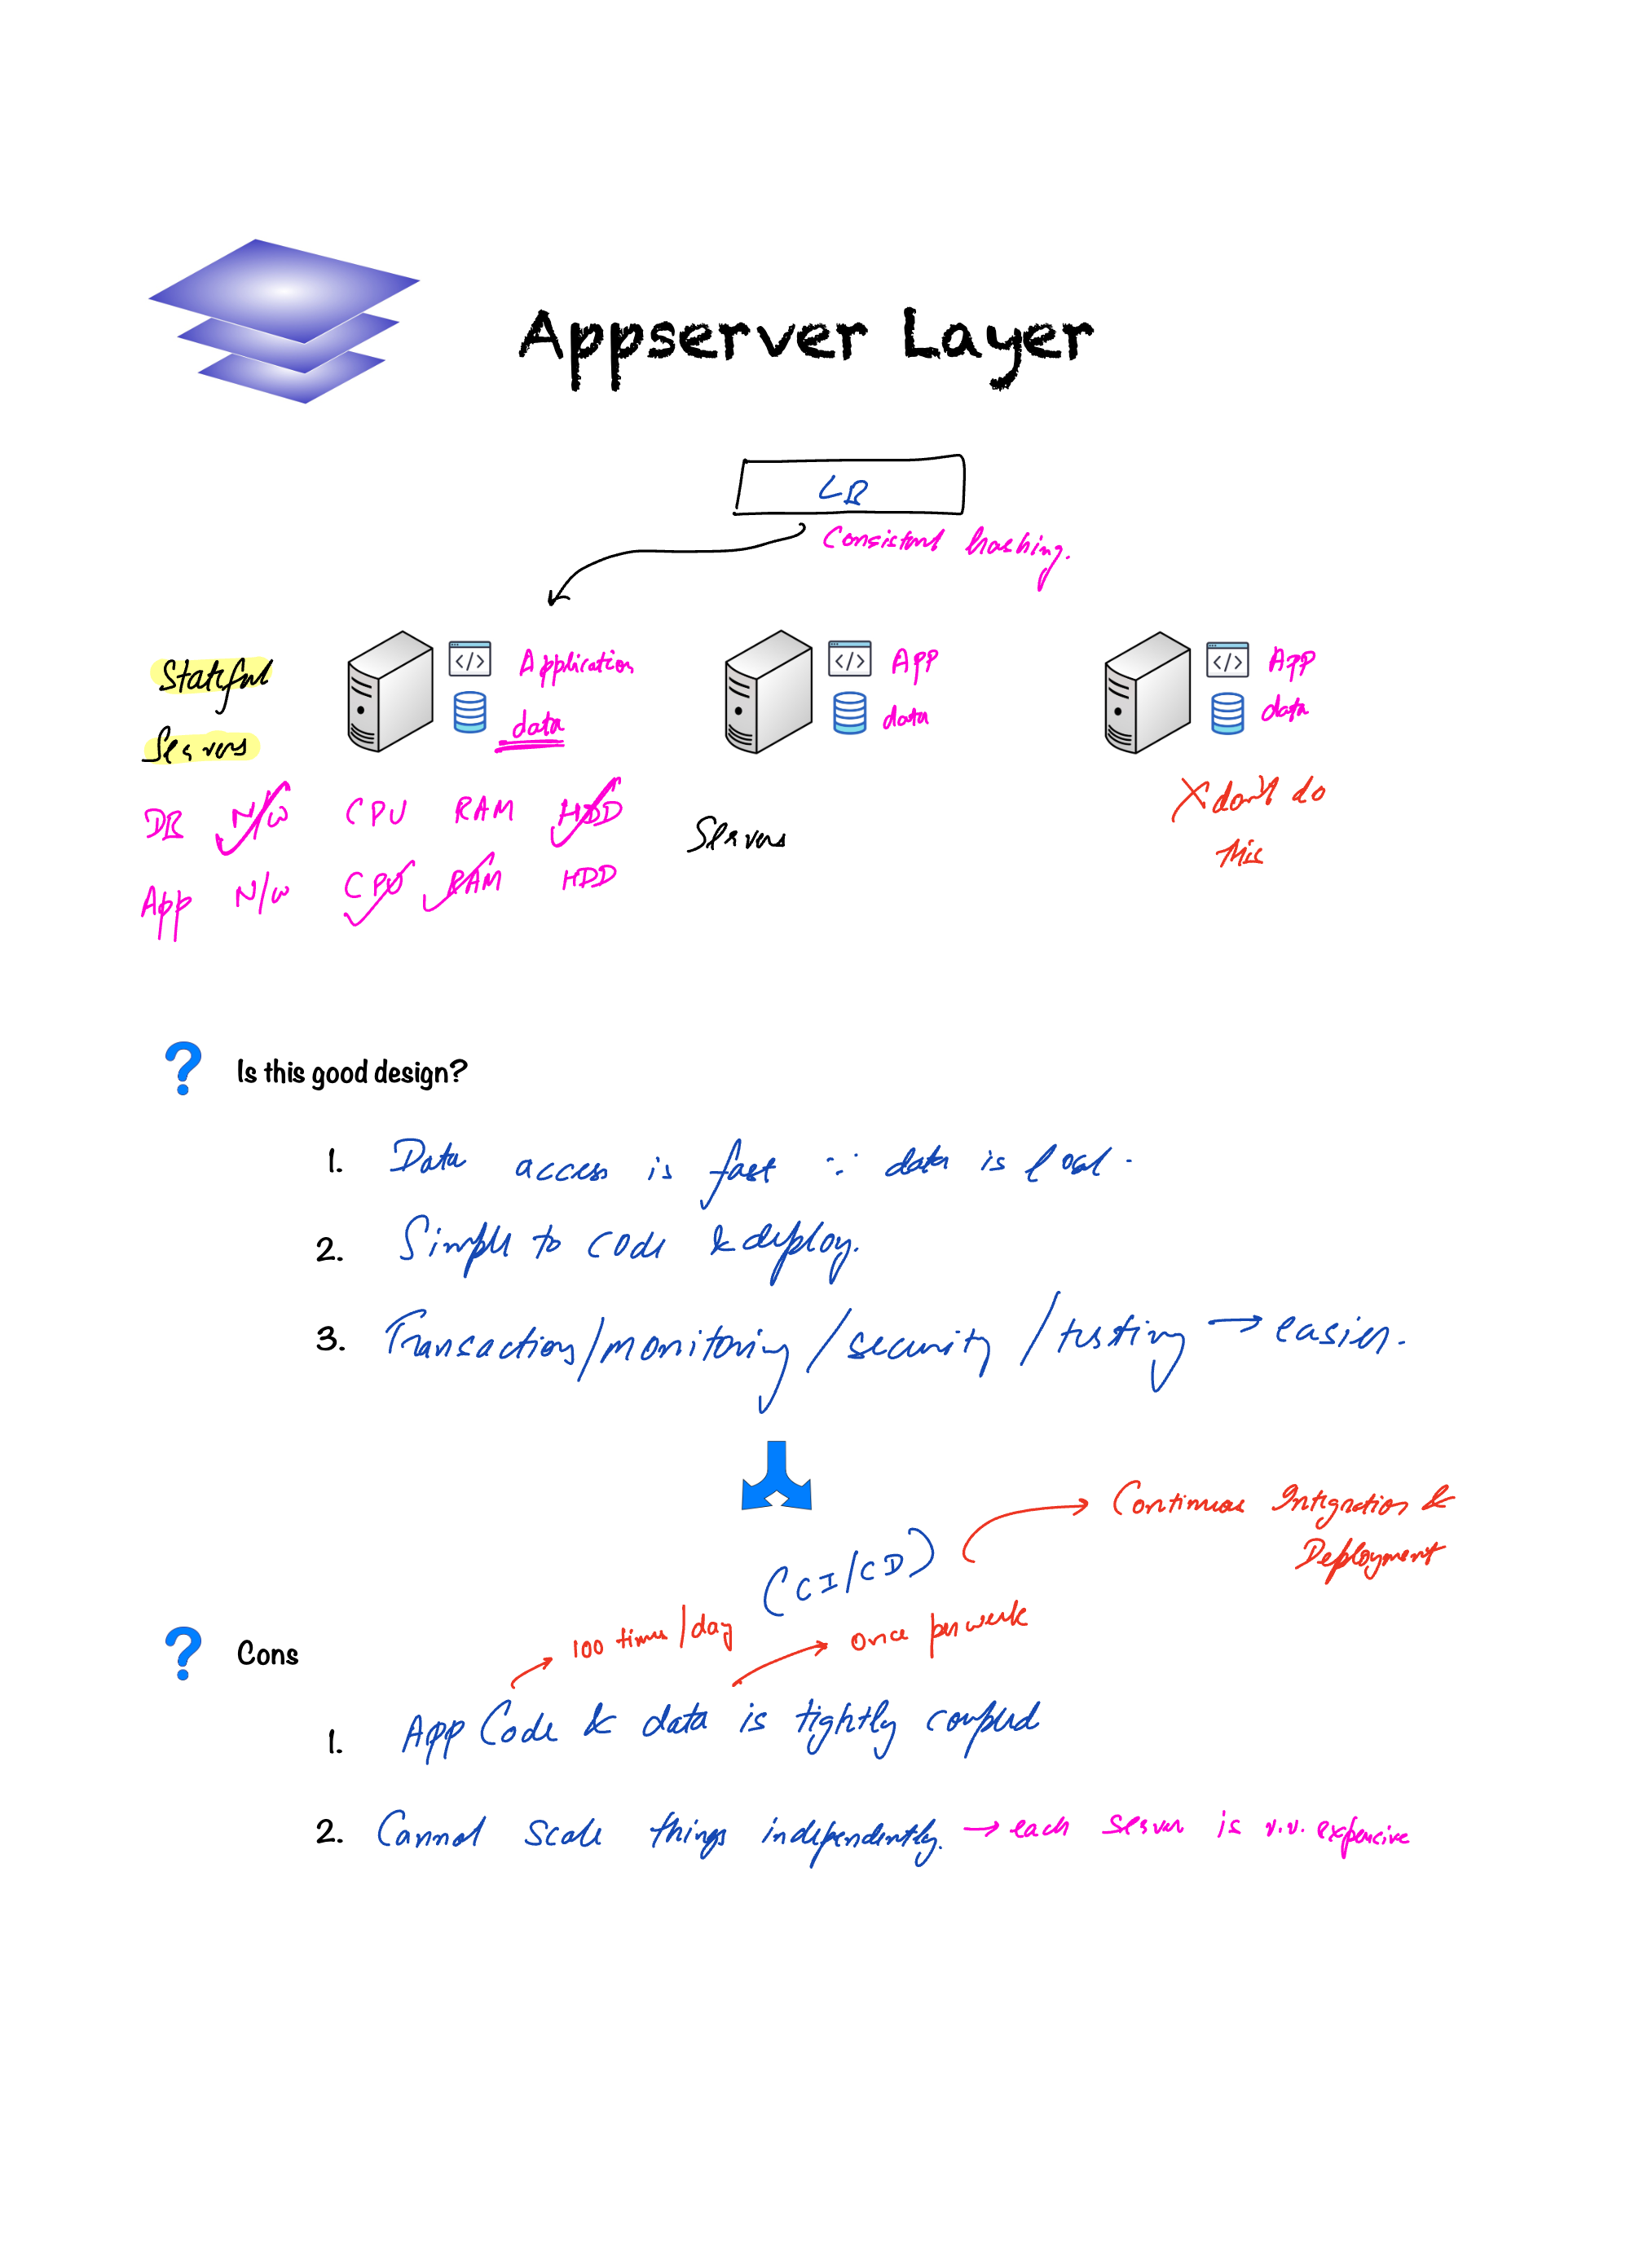 Appserver Layer
LB
Consistent hashing.
Stateful
Servers
</> Application
data
</> APP
data
</> App
data
X don't do
this
DB N/W CPU RAM HDD
Servers
App N/W CPU RAM HDD
? Is this good design?
1. Data access is fast ∵ data is local.
2. Simple to code & deploy.
3. Transaction/monitoring/security/testing → easier.
(CI/CD) → Continuous Integration &
Deployment
? Cons
→ 100 times/day
→ once per week
1. App Code & data is tightly coupled
2. Cannot scale things independently. → each server is v.v. expensive